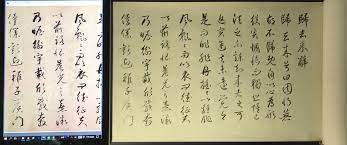 歸去來辭
歸去來兮田園將蕪
胡不歸既自以心為形
役奚惆悵而獨悲悟已
往之不諫知來者之可
追實迷途其未遠覺今
是而昨非舟遙遙以輕
風飄飄而吹衣問征夫
以前路恨晨光之熹微
乃瞻衡宇載欣載奔
僮僕歡迎稚子候門
風飄飄而吹衣問征夫
以前路恨晨光之熹微
乃瞻衡宇載欣載奔
僮僕歡迎稚子候門